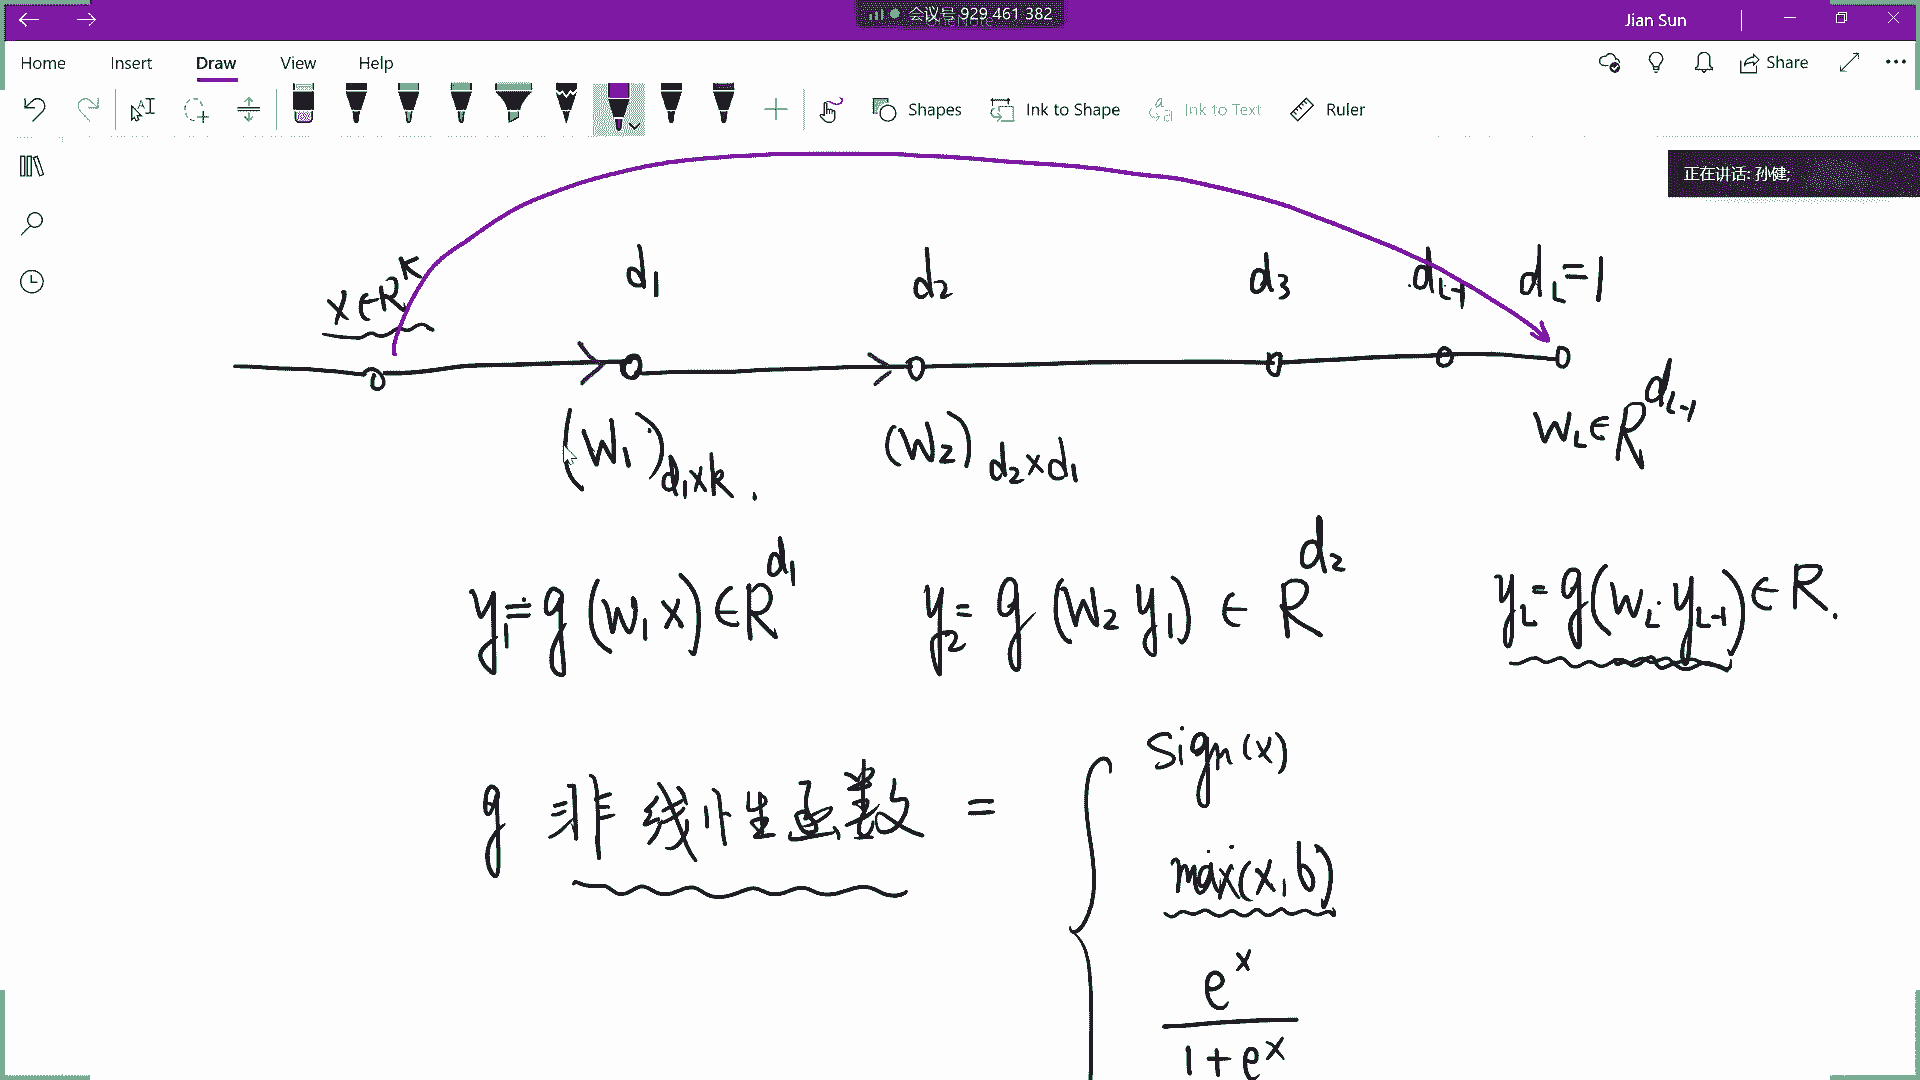 会议号 929 461 382
Jian Sun
Home Insert Draw View Help
Share
Shapes Ink to Shape Ink to Text Ruler
正在讲话: 孙健;
x∈R^k d₁ d₂ d₃ d_{L-1} d_L=1
(W₁)_{d₁×k} . (W₂)_{d₂×d₁} W_L∈R^{d_{L-1}}
y₁=g(W₁x)∈R^{d₁} y₂=g(W₂y₁)∈R^{d₂} y_L=g(W_L·y_{L-1})∈R.
g 非线性函数 = {
sign(x)
max(x,b)
e^x
1+e^x